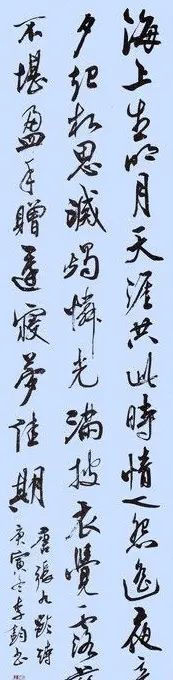 海上生明月天涯共此時情人怨遙夜竟
夕起相思滅燭憐光滿披衣覺露滋
不堪盈手贈還寢夢佳期
唐張九齡詩
庚寅冬李鈞书